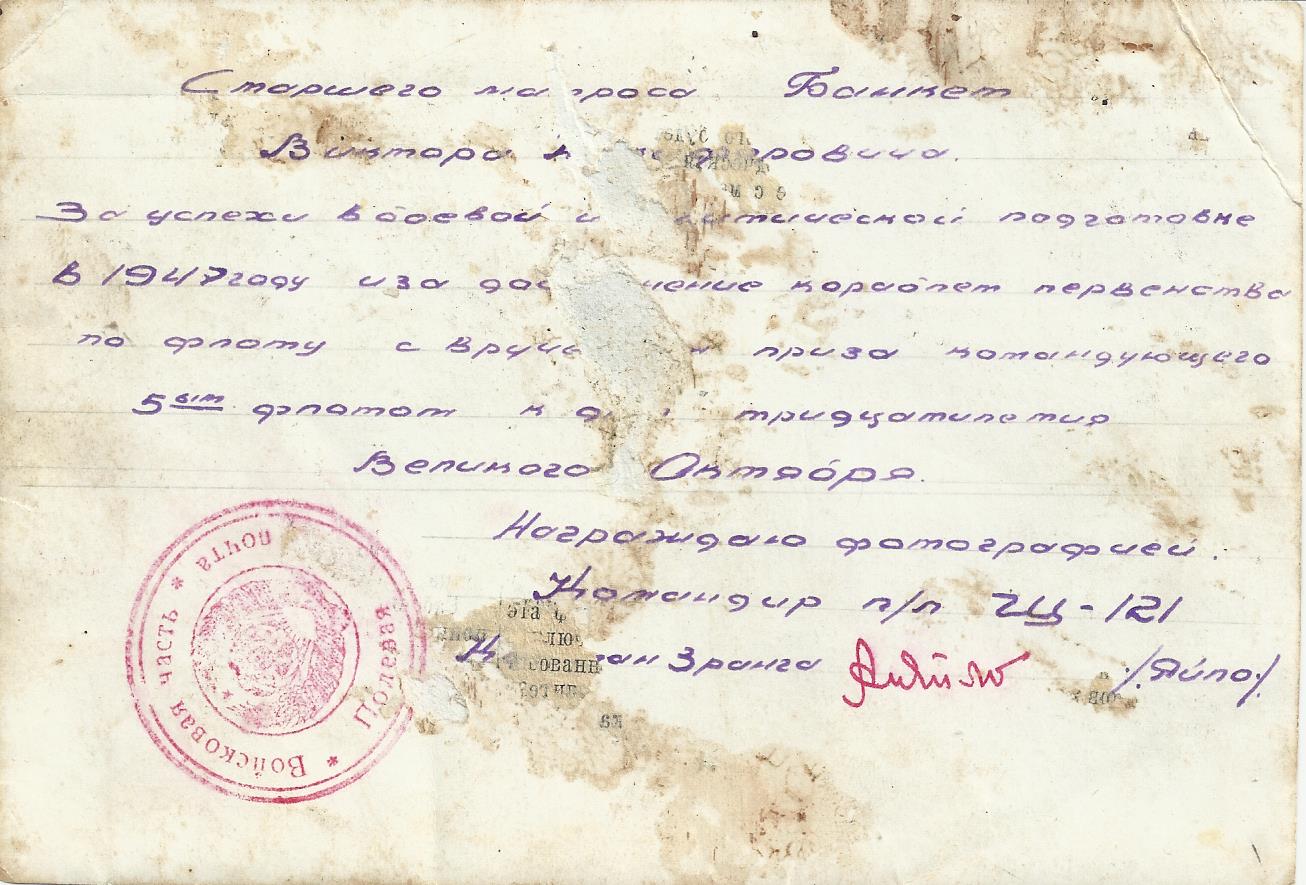 Старшего матроса Банкет
Виктора ровича.
За успехи в боевой и подготовке
в 1947 году и за кораблем первенства
по флоту с приза командующего
5ым флотом к тридцатилетия
Великого Октября.
Награждаю фотографией.
Командир п/л ЩЩ-121
3 ранга /Яйло/
* Войсковая часть * Полевая почта